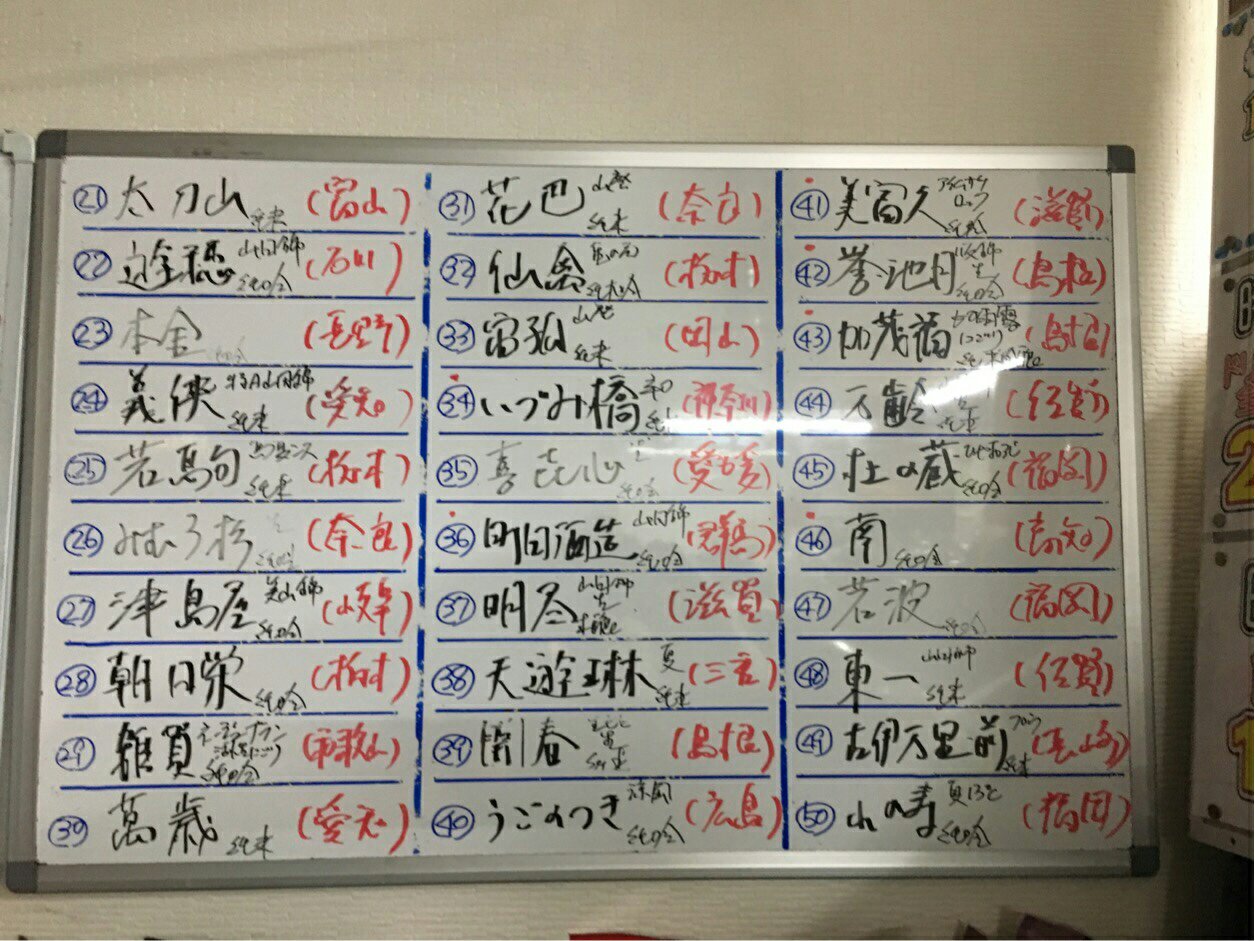 ㉑ 太刀山 純米 (富山)
㉒ 遊穂 山田錦 純吟 (石川)
㉓ 本金 純吟 (長野)
㉔ 義侠 特A山田錦 純米 (愛知)
㉕ 若駒 純米 (栃木)
㉖ みむろ杉 純吟 (奈良)
㉗ 津島屋 美山錦 純吟 (岐阜)
㉘ 朝日栄 純吟 (栃木)
㉙ 雑賀 純吟 (和歌山)
㉚ 萬歳 純米 (愛知)
㉛ 花巴 山廃 純米 (奈良)
㉜ 仙禽 亀の尾 (栃木)
㉝ 富 山廃 純米 (岡山)
㉞ いづみ橋 (神奈川)
㉟ 喜 心 純吟 (愛媛)
㊱ 町田酒造 山田錦 純吟 (群馬)
㊲ 明尽 山田錦 (滋賀)
㊳ 天遊琳 夏 純米 (三重)
㊴ 開春 (島根)
㊵ うごのつき 涼風 純吟 (広島)
㊶ 美冨久 純吟 (滋賀)
㊷ 誉池月 純吟 (島根)
㊸ 加茂福 (島根)
㊹ 万齢 (佐賀)
㊺ 杜の蔵 純吟 (福岡)
㊻ 南 純吟 (高知)
㊼ 若波 純吟 (福岡)
㊽ 東一 山田錦 純米 (佐賀)
㊾ 古伊万里 前 純米
㊿ 山の壽 夏13℃ 純吟 (福岡)